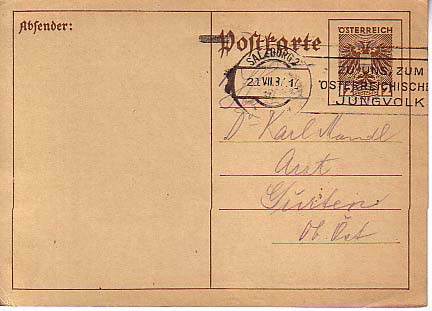 Absender:
Postkarte
ÖSTERREICH
SALZBURG 2
ZU UNS, ZUM
ÖSTERREICHISCHE
JUNGVOLK
Dr Karl Mandl
Arzt
Gurten
Ob. Öst